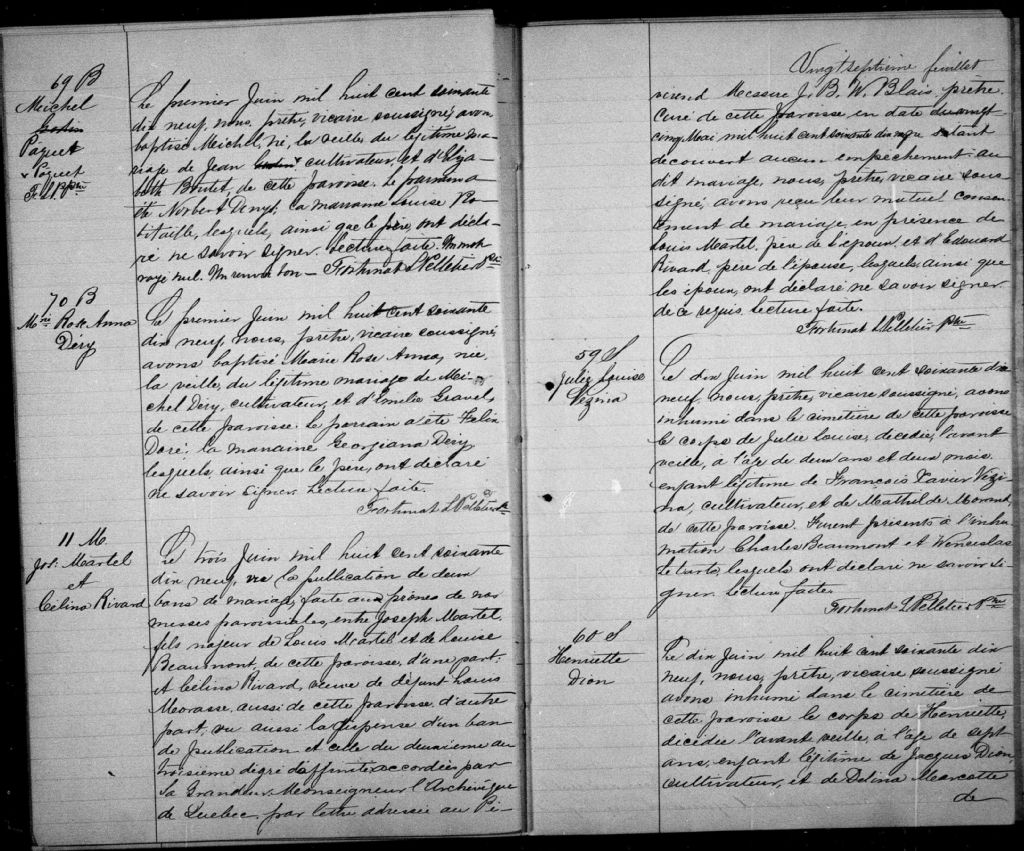 69 B
Meichel
Paquet
v Paquet
F. S. P. ptre
Le premier Juin mil huit cent soixante
dix neuf, nous, prêtre, vicaire soussigné, avons
baptisé Meichel, né, la veille du légitime ma-
riage de Jean v cultivateur, et d'Eliza-
beth Boutet, de cette paroisse. Le parrain a
été Norbert Denys, la marraine Louise Ro-
bitaille, lesquels, ainsi que le père, ont décla-
ré ne savoir signer. Lecture faite. Un mot
rayé nul. Un renvoi bon — Fortunat S Pelletier Ptre
70 B
Mrie Rose Anna
Déry
Le premier Juin mil huit cent soixante
dix neuf, nous, prêtre, vicaire soussigné,
avons baptisé Marie Rose Anna, née
la veille, du légitime mariage de Mei-
chel Déry, cultivateur, et d'Emilie Gravel,
de cette paroisse. Le parrain a été Felix
Doré, la marraine Georgiana Déry
lesquels ainsi que le père, ont déclaré
ne savoir signer. Lecture faite.
Fortunat S Pelletier Ptre
11 M.
Jos. Martel
et
Célina Rivard
Le trois Juin mil huit cent soixante
dix neuf, vu la publication de deux
bans de mariage, faite aux prônes de nos
messes paroissiales, entre Joseph Martel,
fils majeur de Louis Martel et de Louise
Beaumont, de cette paroisse, d'une part;
et Célina Rivard, veuve de défunt Louis
Morasse, aussi de cette paroisse d'autre
part, vu aussi la dispense d'un ban
de publication et celle du deuxième au
troisième degré d'affinité accordées par
Sa Grandeur Monseigneur l'Archevêque
de Québec, par lettre adressée au Ré-
Vingt septième feuillet
vérend Messire J. B. W. Blais, prêtre
Curé de cette paroisse en date du vingt
cinq Mai mil huit cent soixante dix neuf ne s'étant
découvert aucun empêchement au
dit mariage, nous, prêtre, vicaire sous-
signé, avons reçu leur mutuel consen-
tement de mariage, en présence de
Louis Martel, père de l'époux, et d'Edouard
Rivard, père de l'épouse, lesquels ainsi que
les époux, ont déclaré ne savoir signer
de ce requis. Lecture faite.
Fortunat S Pelletier Ptre
59 S
Julie Louise
Vézina
Le dix Juin mil huit cent soixante dix
neuf, nous, prêtre, vicaire soussigné, avons
inhumé dans le cimetière de cette paroisse
le corps de Julie Louise, décédée, l'avant
veille, à l'âge de deux ans et deux mois,
enfant légitime de François Xavier Vézi-
na, cultivateur, et de Mathilde
de cette paroisse. Furent présents à l'inhu-
mation Charles Beaumont et Wenceslas
lesquels ont déclaré ne savoir si-
gner. Lecture faite.
Fortunat S Pelletier Ptre
60 S
Henriette
Dion
Le dix Juin mil huit cent soixante dix
neuf, nous, prêtre, vicaire soussigné
avons inhumé dans le cimetière de
cette paroisse le corps de Henriette,
décédée l'avant veille, à l'âge de sept
ans, enfant légitime de Jacques Dion,
cultivateur, et de Delina Marcotte
de